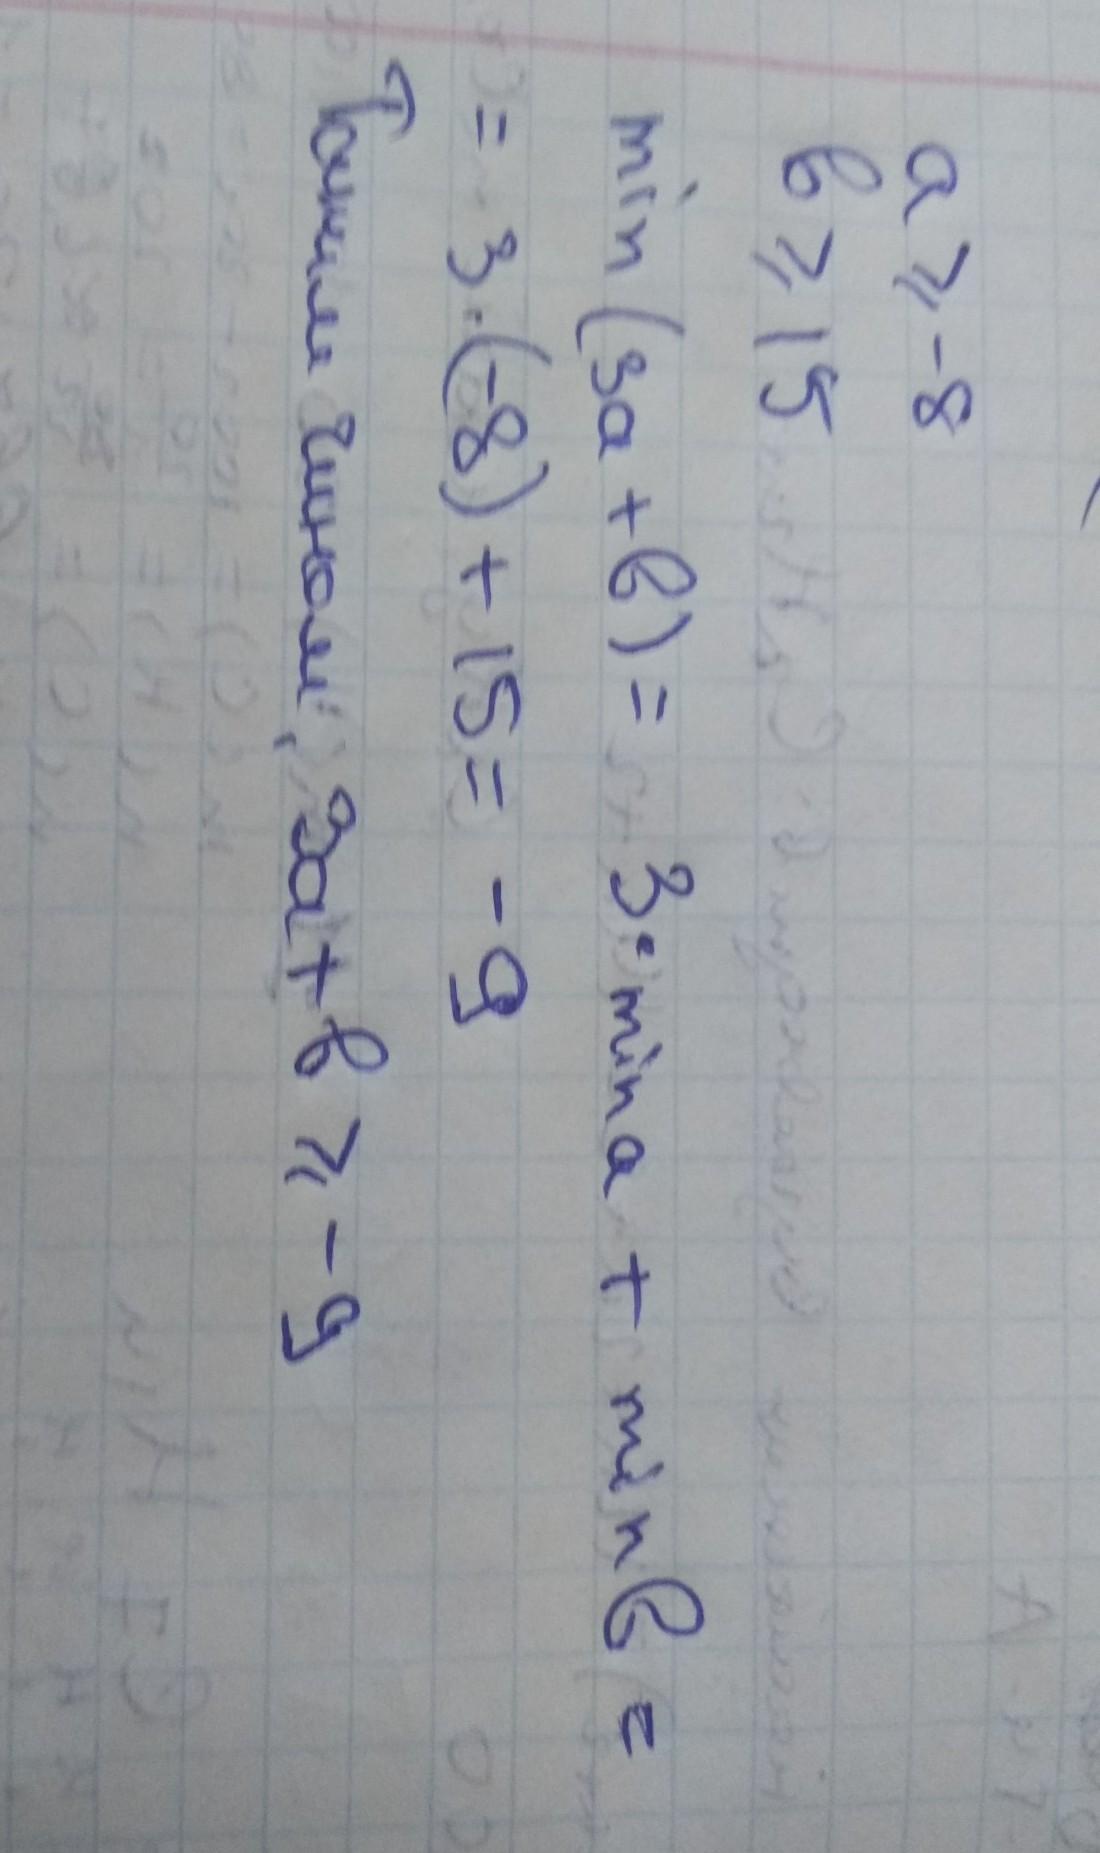 a ⩾ -8
b ⩾ 15
min (3a + b) = 3·min a + min b =
= 3·(-8) + 15 = - 9
Таким чином, 3a + b ⩾ - 9